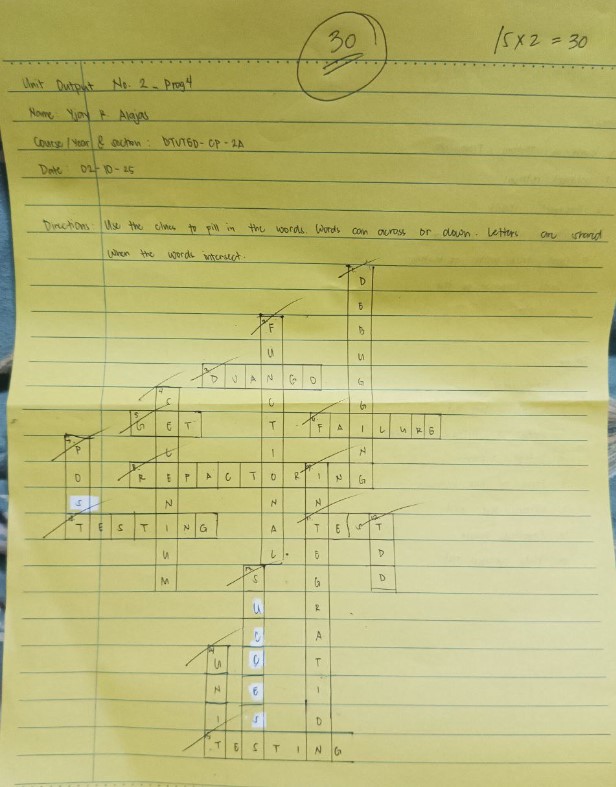 30
15 x 2 = 30
Unit Output No. 2 - Prog4
Name: Yjay R. Alajas
Course/Year & Section: DTVTED-CP-2A
Date: 02-10-25
Directions: Use the clues to fill in the words. Words can across or down. Letters are shared
when the words intersect.
DEBUGGING
FUNCTIONAL
DJANGO
SELENIUM
GET
FAILURE
POST
REFACTORING
INTEGRATION
TESTING
TEST
TDD
SUCCESS
UNIT
TESTING